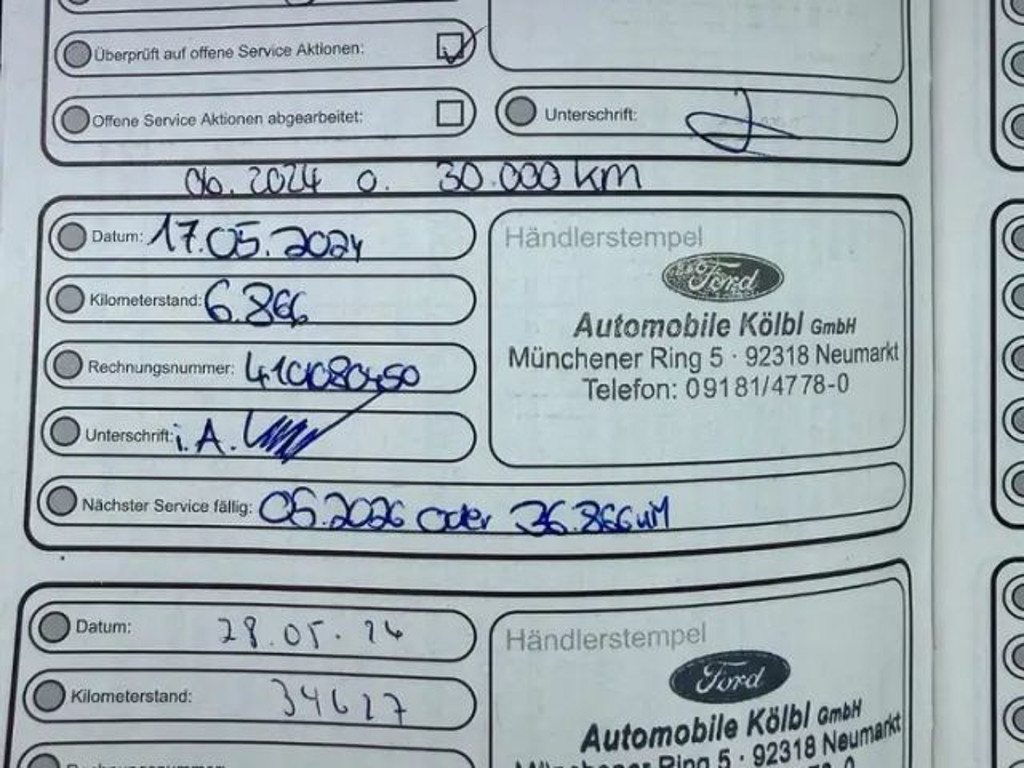 Überprüft auf offene Service Aktionen:
Offene Service Aktionen abgearbeitet:
Unterschrift:
06.2024 o. 30.000 km
Datum: 17.05.2024
Kilometerstand: 6.866
Rechnungsnummer:
Unterschrift: i.A.
Nächster Service fällig: 05.2026 oder 36.866 KM
Händlerstempel
Ford
Automobile Kölbl GmbH
Münchener Ring 5 · 92318 Neumarkt
Telefon: 09181/4778-0
Datum: 28.05.
Kilometerstand: 34627
Händlerstempel
Ford
Automobile Kölbl GmbH
Ring 5 · 92318 Neumarkt